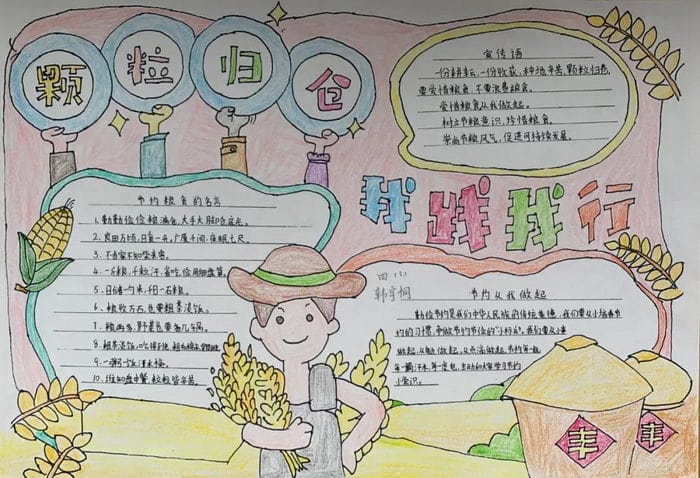 颗粒归仓
宣传语
一份耕耘,一份收获,种地辛苦,颗粒归仓,
要爱惜粮食,不要浪费粮食。
爱惜粮食从我做起。
树立节粮意识,珍惜粮食。
崇尚节粮风气,促进可持续发展。
我践我行
节约粮食的名言
1、勤勤俭俭粮满仓,大手大脚仓底光。
2、良田万顷,日食一升,广厦千间,夜眠七尺。
3、不当家不知柴米贵。
4、一斤粮,千粒汗,省吃俭用细盘算。
5、日储一勺米,千日一石粮。
6、粮收万石,也要粗茶淡饭。
7、粮
8、粗茶淡饭
9、一粥一饭,汗水换。
10、谁知盘中餐,粒粒皆辛苦。
四
韩宇桐
节约从我做起
勤俭节约是我们中华民族的传统美德,我们要从小培养节
约的习惯,争做节约节俭的“小标兵”,我们要从今
做起,从触做起,从点滴做起,节约每一粒
每一滴汗水,每一度电,主动和大家学习节约
小常识。
丰
丰